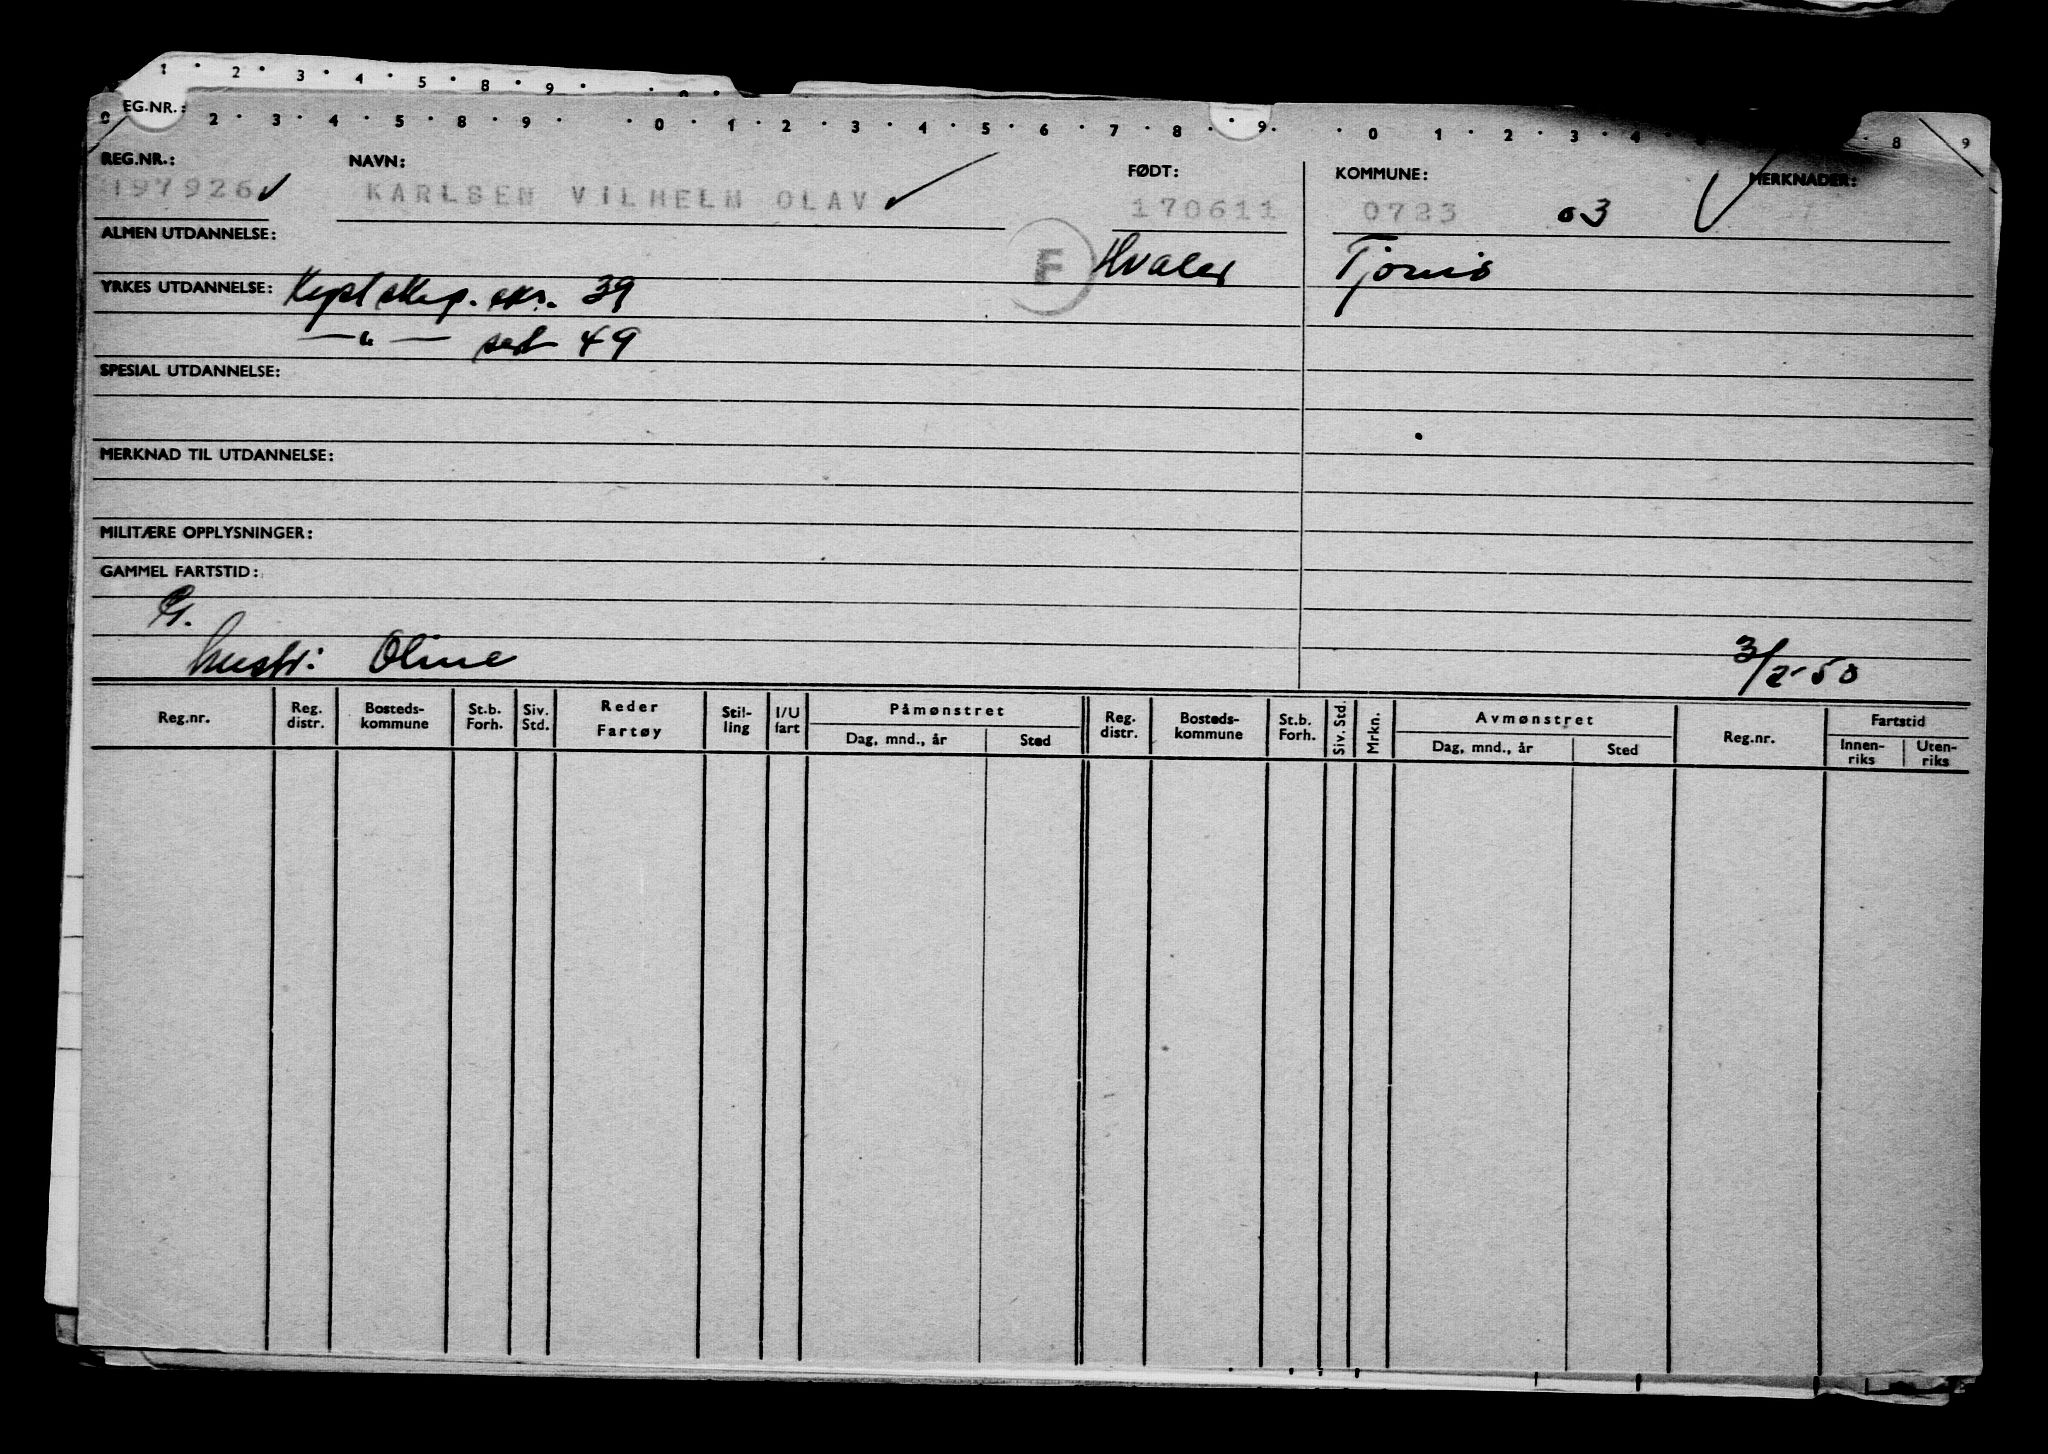 1 · 2 · 3 · 4 · 5 · 8 · 9 · · 0 ·
EG.NR.:
0 2 · 3 · 4 · 5 · 8 · 9 · · 0 · 1 · 2 · 3 · 4 · 5 · 6 · 7 · 8 · 9 · · 0 1 · 2 · 3 · 4 8 9
REG.NR.: NAVN: FØDT: KOMMUNE: MERKNADER:
197926 KARLSEN VILHELM OLAV 170611 0723 03
ALMEN UTDANNELSE: F Hvaler Tjøme
YRKES UTDANNELSE: Kystskip. eks. 39
— " — sert 49
SPESIAL UTDANNELSE:
MERKNAD TIL UTDANNELSE:
MILITÆRE OPPLYSNINGER:
GAMMEL FARTSTID:
G.
hustr: Oline 3/2-50
Reg.nr. Reg. distr. Bosteds- kommune St.b. Forh. Siv. Std. Reder Fartøy Stil- ling I/U fart Påmønstret Dag, mnd., år Sted Reg. distr. Bosteds- kommune St.b. Forh. Siv. Std. Mrkn. Avmønstret Dag, mnd., år Sted Reg.nr. Fartstid Innen- riks Uten- riks